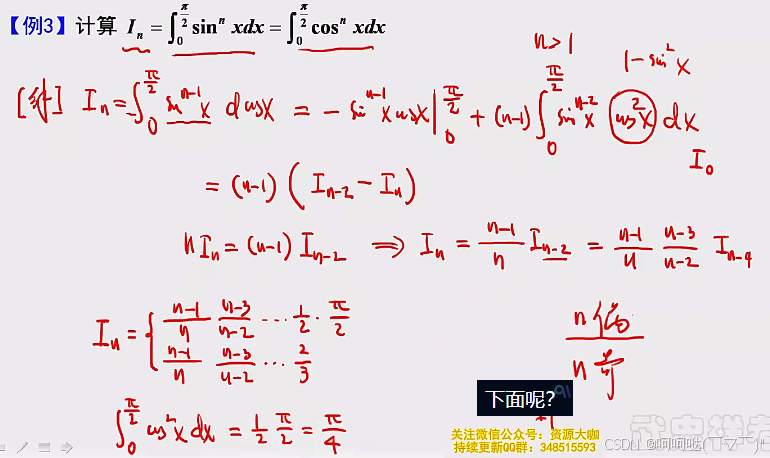 【例3】计算 I_n = ∫_0^{π/2} sin^n xdx = ∫_0^{π/2} cos^n xdx
n>1
1-sin²x
[解] I_n = -∫_0^{π/2} sin^{n-1}x dcosx = -sin^{n-1}x cosx |_0^{π/2} + (n-1) ∫_0^{π/2} sin^{n-2}x cos²x dx
I_0
= (n-1) ( I_{n-2} - I_n )
n I_n = (n-1) I_{n-2} ⟹ I_n = \frac{n-1}{n} I_{n-2} = \frac{n-1}{n} \frac{n-3}{n-2} I_{n-4}
I_n = { \frac{n-1}{n} \frac{n-3}{n-2} ... \frac{1}{2} · \frac{π}{2}
\frac{n-1}{n} \frac{n-3}{n-2} ... \frac{2}{3}
n 偶
n 奇
∫_0^{π/2} cos²x dx = \frac{1}{2} \frac{π}{2} = \frac{π}{4}
下面呢？
关注微信公众号：资源大咖
持续更新QQ群：348515593